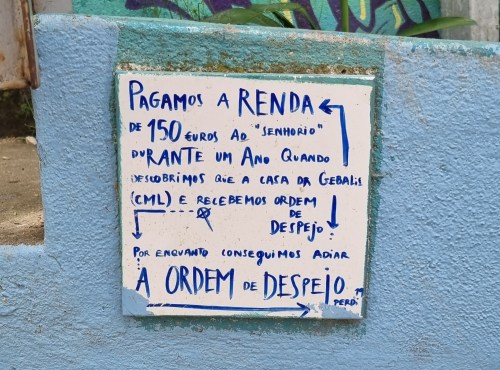 PAGAMOS A RENDA
DE 150 EUROS AO "SENHORIO"
DURANTE UM ANO QUANDO
DESCOBRIMOS QUE A CASA DA GEBALIS
(CML) E RECEBEMOS ORDEM
DE
DESPEJO
POR ENQUANTO CONSEGUIMOS ADIAR
A ORDEM DE DESPEJO